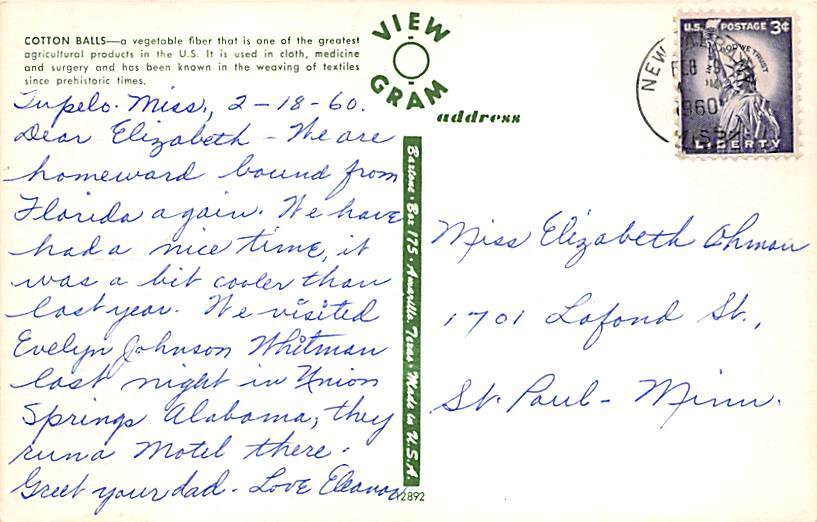 COTTON BALLS—a vegetable fiber that is one of the greatest
agricultural products in the U.S. It is used in cloth, medicine
and surgery and has been known in the weaving of textiles
since prehistoric times.
VIEW
GRAM
address
Tupelo. Miss., 2-18-60.
Dear Elizabeth - We are
homeward bound from
Florida again. We have
had a nice time, it
was a bit cooler than
last year. We visited
Evelyn Johnson Whitman
last night in Union
Springs Alabama; they
run a Motel there.
Greet your dad - Love Eleanor
Baxtone · Box 175 · Amarillo, Texas · Made in U.S.A.
12892
U.S. POSTAGE 3¢
IN GOD WE TRUST
LIBERTY
NEW
FEB
1960
MISS
Miss Elizabeth Ohman
1701 Lafond St.,
St. Paul - Minn.